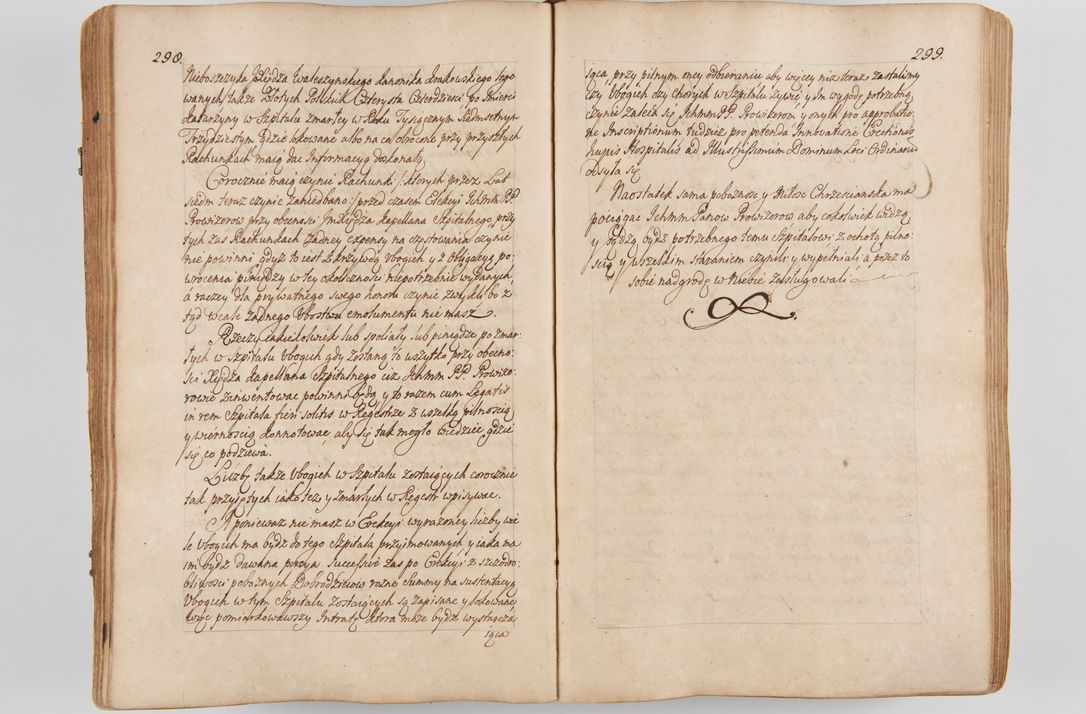 298.
Nieboszczyka Xiędza Waleszynskiego Kanonika Krakowskiego lego
wanych, także Złotych Polskiik Czterysta Czterdziesci po Smierci
Katarzyny w Szpitalu zmarłey w Roku Tysiącznym Siedmsetnym
Trzydziestym gdzie lokowane albo na co obrocone przy przyszłych
Rachunkach maią dac Informacyą doskonałą.
Corocznie maią czynic Rachunki /: ktorych przez Lat
siedm teraz czynic zaniedbano :/ przed czasem Elekcyi Ichmm PP
Prowizorow przy obecnosci Xiędza Kapellana Szpitalnego, przy
tych zas Rachunkach żadney expensy na częstowania czynic
nie powinni gdyż to iest z krzywdą Vbogich y z obligacyą po,
wrocenia pieniędzy w tey okoliczności niepotrzebnie wydanych
a raczey dla prywatnego swego honoru czynic zwykli, bo z,
tąd wcale żadnego Vbostwu emolumentu nie masz.
Rzeczy iakiekolwiek lub spoliały lub pieniądze po zmar:
łych w Szpitalu Vbogich gdy zostaną to wszytko przy obecno:
sci Xiędza Kapellana Szpitalnego ciż Ichmm PP. Prowizo:
rowie zainwentowac powinni będą y to razem cum Legatis
in rem Szpitala fieri solitis w Regestrze z wszelką pilnoscią
y wiernoscią konnotowac, aby się tak mogło wiedziec gdzie
się co podziewa.
Liczbę także Vbogich w Szpitalu zostaiących corocznie
tak przyiętych iako też y zmarłych w Regestr wpisywac.
A ponieważ nie masz w Erekcyi wyrażoney liczby wie
le Vbogich ma bydz do tego Szpitala przyimowanych y iaka ma
im bydz dawana porcya Successivè zas po Erekcyi z szczodro:
bliwosci pobożnych Dobrodzieiow rożne Summy na sustentacyą
Vbogich w tym Szpitalu zostaiących są zapisane y lokowane
więc pomiarkowawszy Intratę ktora może bydz wystarcza
iąca
299.
iąca przy pilnym oney odbieraniu aby więcey niż teraz zastalismy
czy Vbogich czy chorych w Szpitalu żywic y Im wygodę potrzebną
czynic zaleca się Ichmm PP. Prowizorom y onych pro approbatio
ne Inscriptionum tudziesz pro petenda Innovatione Erectionis
hujus Hospitalis ad Illustrissimum Dominum Loci Ordinariu
odsyła się
Naostatek sama pobożnosc y Miłosc Chrzescianska ma
pociągac Ichmm Panow Prowizorow aby cokolwiek widzą
y będą bydz potrzebnego temu Szpitalowi z ochotą pilno:
scią y wszelkim staraniem czynili y wypełniali a przez to
sobie nadgrodę w Niebie zasługowali